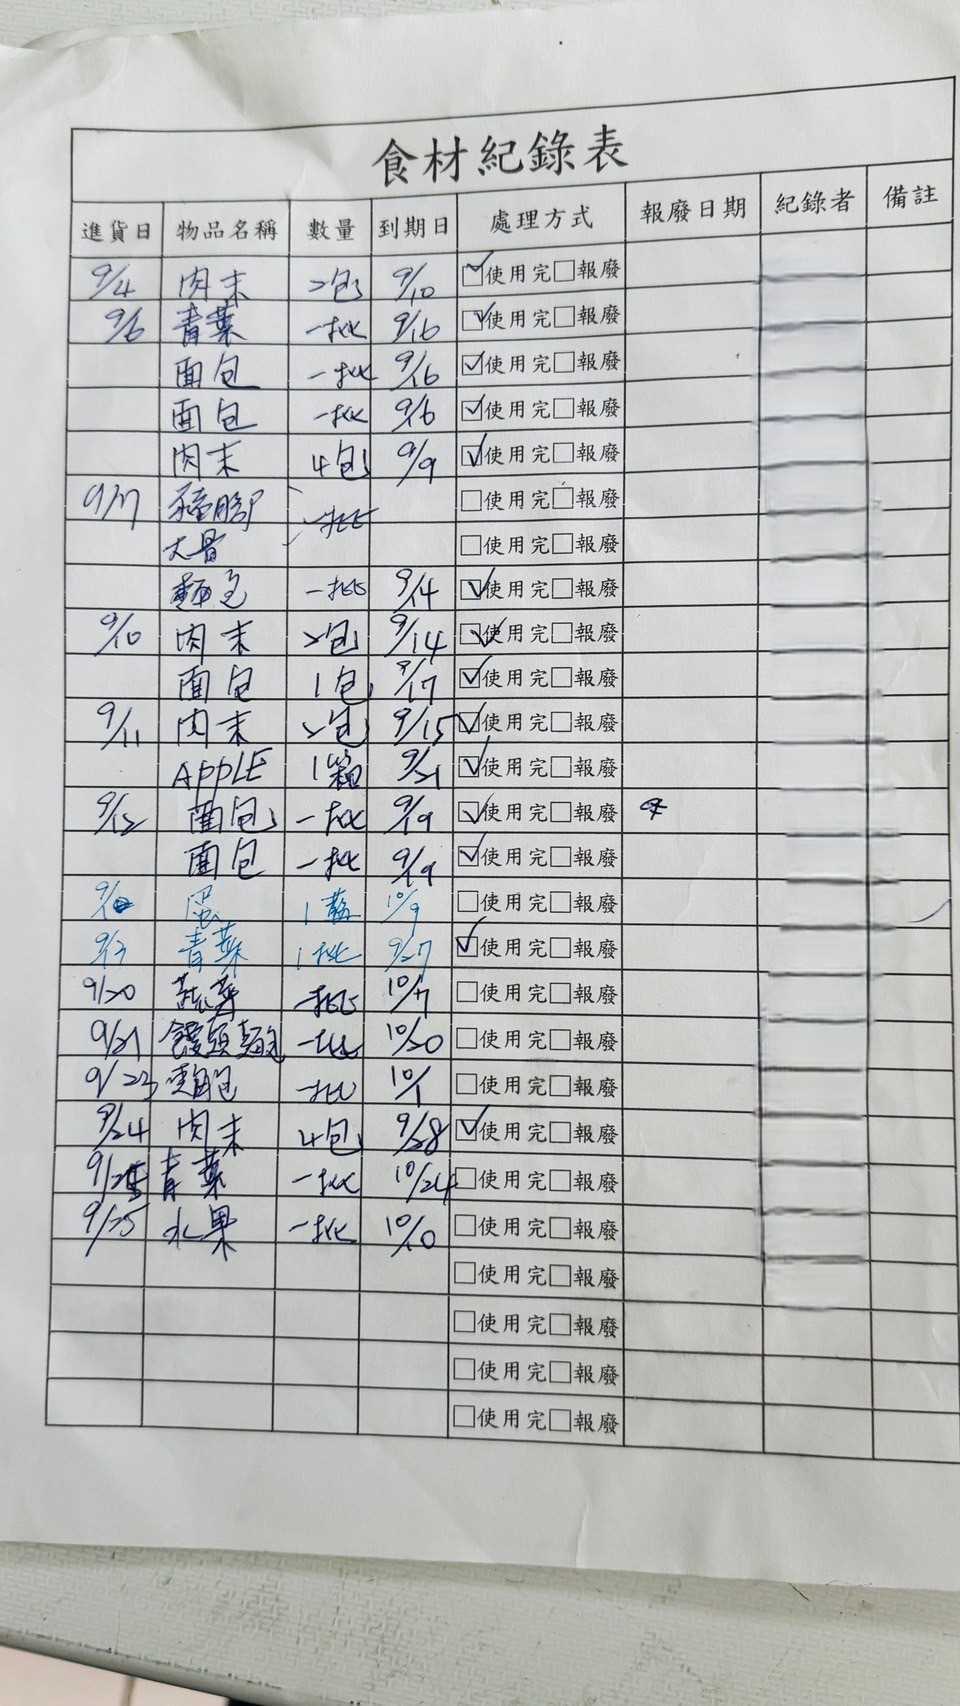 食材紀錄表
進貨日 物品名稱 數量 到期日 處理方式 報廢日期 紀錄者 備註
9/4 肉末 2包 9/10 ☑使用完☐報廢
9/6 青菜 一批 9/16 ☑使用完☐報廢
面包 一批 9/16 ☑使用完☐報廢
面包 一批 9/16 ☑使用完☐報廢
肉末 4包 9/9 ☑使用完☐報廢
9/7 豬腳 一批 ☐使用完☐報廢
大骨 ☐使用完☐報廢
麵包 一批 9/14 ☑使用完☐報廢
9/10 肉末 2包 9/14 ☑使用完☐報廢
面包 1包 9/17 ☑使用完☐報廢
9/11 肉末 2包 9/15 ☑使用完☐報廢
APPLE 1箱 9/21 ☑使用完☐報廢
9/12 面包 一批 9/19 ☑使用完☐報廢
面包 一批 9/19 ☑使用完☐報廢
蛋 1籃 10/9 ☐使用完☐報廢
9/13 青菜 1批 9/27 ☑使用完☐報廢
9/20 蔬菜 一批 10/7 ☐使用完☐報廢
9/21 饅頭麵包 一批 10/20 ☐使用完☐報廢
9/23 麵包 一批 10/1 ☐使用完☐報廢
9/24 肉末 4包 9/28 ☑使用完☐報廢
9/25 青菜 一批 10/24 ☐使用完☐報廢
9/25 水果 一批 10/10 ☐使用完☐報廢
☐使用完☐報廢
☐使用完☐報廢
☐使用完☐報廢
☐使用完☐報廢